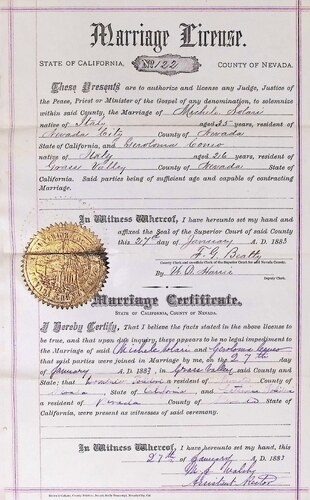 Marriage License.
STATE OF CALIFORNIA, No. 122 COUNTY OF NEVADA.
These Presents are to authorize and license any Judge, Justice of
the Peace, Priest or Minister of the Gospel of any denomination, to solemnize
within said County, the Marriage of Michele Solari
native of Italy aged 35 years, resident of
Nevada City County of Nevada
State of California, and Gerolomia Coneo
native of Italy aged 26 years, resident of
Grass Valley County of Nevada State of
California. Said parties being of sufficient age and capable of contracting
Marriage.
In Witness Whereof, I have hereunto set my hand and
affixed the Seal of the Superior Court of said County
this 27th day of January A. D. 1883
F. G. Beatty
County Clerk and ex-officio Clerk of the Superior Court in and for said Nevada County.
By W. D. Harris
Deputy Clerk.
Marriage Certificate.
STATE OF CALIFORNIA, COUNTY OF NEVADA.
I Hereby Certify, That I believe the facts stated in the above license to
be true, and that upon due inquiry, there appears to be no legal impediment to
the Marriage of said Michele Solari and
that said parties were joined in Marriage by me, on the 27th day of
January A. D. 1883, in Grass Valley said County and
State; that a resident of
Nevada State of California and
a resident of Nevada County of State of
California, were present as witnesses of said ceremony.
In Witness Whereof, I have hereunto set my hand, this
27th of January A. D. 1883
Assistant Rector